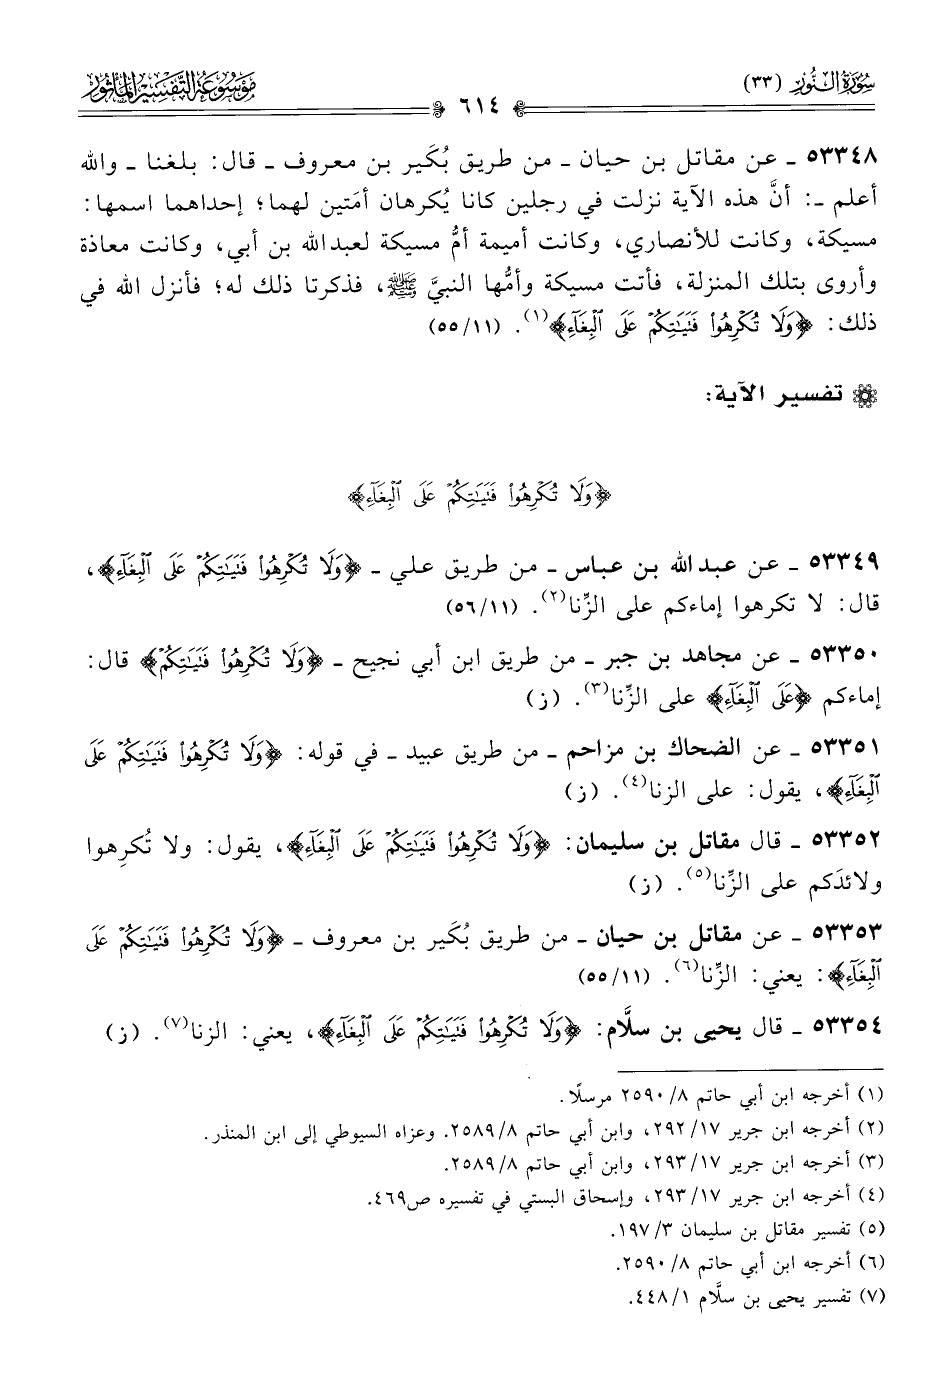 سُورَةُ النُّورِ (٣٣)
٦١٤
مَوْسُوعَةُ التَّفْسِيرِ المَأْثُورِ
٥٣٣٤٨ ـ عن مقاتل بن حيان ـ من طريق بُكَير بن معروف ـ قال: بلغنا ـ والله
أعلم ـ: أنَّ هذه الآية نزلت في رجلين كانا يُكرهان أمَتين لهما؛ إحداهما اسمها:
مسيكة، وكانت للأنصاري، وكانت أميمة أمُّ مسيكة لعبدالله بن أبي، وكانت معاذة
وأروى بتلك المنزلة، فأتت مسيكة وأمُّها النبيَّ ﷺ، فذكرتا ذلك له؛ فأنزل الله في
ذلك: ﴿وَلَا تُكْرِهُوا۟ فَتَيَـٰتِكُمْ عَلَى ٱلْبِغَآءِ﴾(١). (٥٥/١١)
تفسير الآية:
﴿وَلَا تُكْرِهُوا۟ فَتَيَـٰتِكُمْ عَلَى ٱلْبِغَآءِ﴾
٥٣٣٤٩ ـ عن عبدالله بن عباس ـ من طريق علي ـ ﴿وَلَا تُكْرِهُوا۟ فَتَيَـٰتِكُمْ عَلَى ٱلْبِغَآءِ﴾،
قال: لا تكرهوا إماءكم على الزِّنا(٢). (٥٦/١١)
٥٣٣٥٠ ـ عن مجاهد بن جبر ـ من طريق ابن أبي نجيح ـ ﴿وَلَا تُكْرِهُوا۟ فَتَيَـٰتِكُمْ﴾ قال:
إماءكم ﴿عَلَى ٱلْبِغَآءِ﴾ على الزِّنا(٣). (ز)
٥٣٣٥١ ـ عن الضحاك بن مزاحم ـ من طريق عبيد ـ في قوله: ﴿وَلَا تُكْرِهُوا۟ فَتَيَـٰتِكُمْ عَلَى
ٱلْبِغَآءِ﴾، يقول: على الزنا(٤). (ز)
٥٣٣٥٢ ـ قال مقاتل بن سليمان: ﴿وَلَا تُكْرِهُوا۟ فَتَيَـٰتِكُمْ عَلَى ٱلْبِغَآءِ﴾، يقول: ولا تُكرِهوا
ولائدَكم على الزِّنا(٥). (ز)
٥٣٣٥٣ ـ عن مقاتل بن حيان ـ من طريق بُكَير بن معروف ـ ﴿وَلَا تُكْرِهُوا۟ فَتَيَـٰتِكُمْ عَلَى
ٱلْبِغَآءِ﴾: يعني: الزِّنا(٦). (٥٥/١١)
٥٣٣٥٤ ـ قال يحيى بن سلَّام: ﴿وَلَا تُكْرِهُوا۟ فَتَيَـٰتِكُمْ عَلَى ٱلْبِغَآءِ﴾، يعني: الزنا(٧). (ز)
(١) أخرجه ابن أبي حاتم ٨/ ٢٥٩٠ مرسلًا.
(٢) أخرجه ابن جرير ١٧/ ٢٩٢، وابن أبي حاتم ٨/ ٢٥٨٩. وعزاه السيوطي إلى ابن المنذر.
(٣) أخرجه ابن جرير ١٧/ ٢٩٣، وابن أبي حاتم ٨/ ٢٥٨٩.
(٤) أخرجه ابن جرير ١٧/ ٢٩٣، وإسحاق البستي في تفسيره ص٤٦٩.
(٥) تفسير مقاتل بن سليمان ٣/ ١٩٧.
(٦) أخرجه ابن أبي حاتم ٨/ ٢٥٩٠.
(٧) تفسير يحيى بن سلَّام ١/ ٤٤٨.